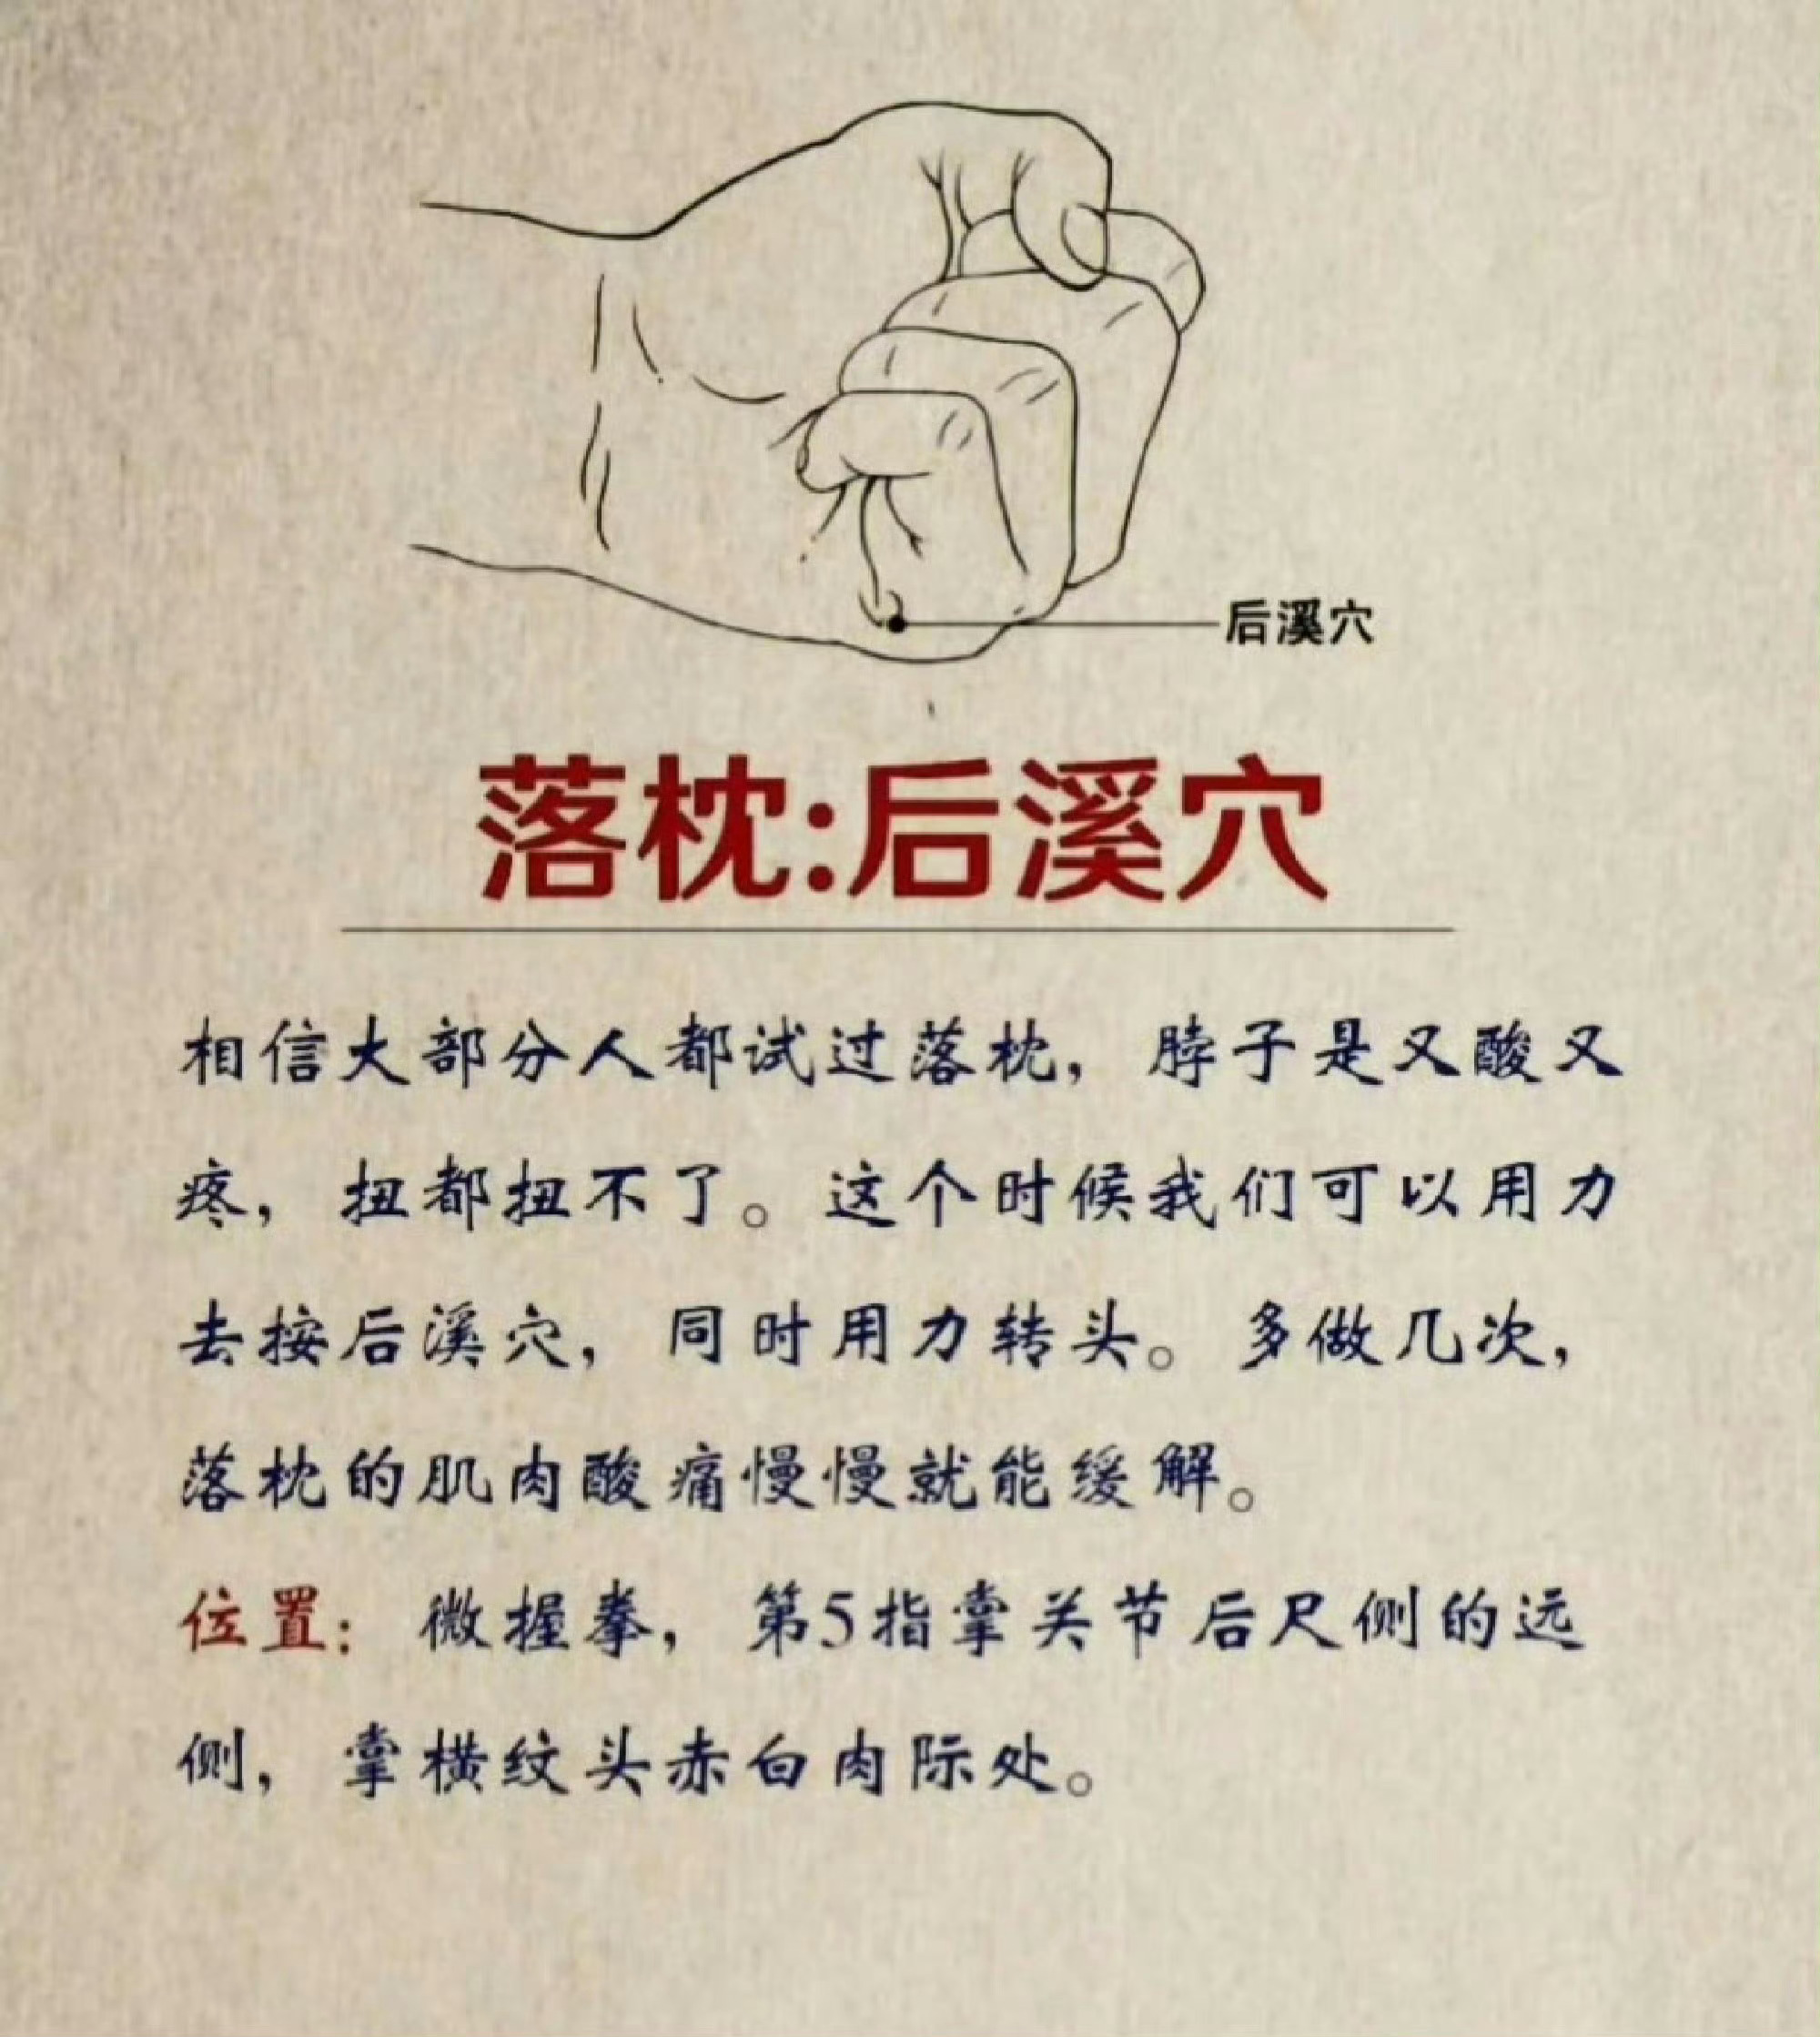 后溪穴
落枕:后溪穴
相信大部分人都试过落枕，脖子是又酸又
疼，扭都扭不了。这个时候我们可以用力
去按后溪穴，同时用力转头。多做几次，
落枕的肌肉酸痛慢慢就能缓解。
位置：微握拳，第5指掌关节后尺侧的远
侧，掌横纹头赤白肉际处。